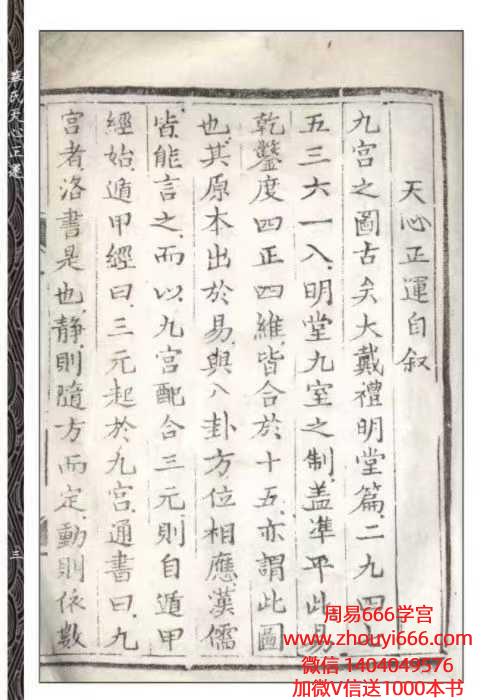 天心正運自叙
九宫之圖古矣大戴禮明堂篇.二九四七
五三六一八.明堂九室之制.盖準乎此易
乾鑿度四正四維.皆合於十五.亦謂此圖
也.其原本出於易.與八卦方位相應漢儒
皆能言之.而以九宫配合三元.則自遁甲
經始.遁甲經曰.三元起於九宫.通書曰.九
宫者.洛書是也.静則隨方而定.動則依數
蔡氏天心正運
三
周易666学宫
www.zhouyi666.com
微信 1404049376
加微V信送1000本书